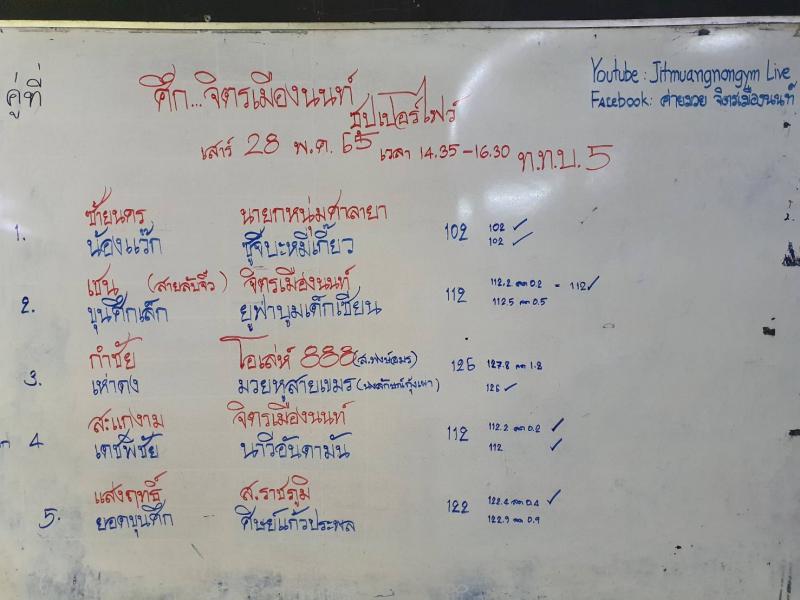 Youtube : Jitmuangnongym Live
Facebook: ค่ายมวย จิตรเมืองนนท์
คู่ที่
ศึก...จิตรเมืองนนท์
ซุปเปอร์ไฟว์
เสาร์ 28 พ.ค. 65 เวลา 14.35-16.30 ท.ท.บ. 5
1. ซ้ายนคร นายกหนุ่มศาลายา 102 102 ✓
น้องแว๊ก ชูจีบะหมี่เกี๊ยว 102 ✓
2. เชน (สายลับจิ๋ว) จิตรเมืองนนท์ 112 112.2 ลด 0.2 - 112 ✓
ขุนศึกเล็ก ยูฟ่าบูมเด็กเซียน 112.5 ลด 0.5
3. กำชัย โอเล่ห์ 888 126 127.8 ลด 1.8
เห่าดง มวยหูสายเขมร 126 ✓
4 สะแกงาม จิตรเมืองนนท์ 112 112.2 ลด 0.2 ✓
เดชพิชัย นาวีอันดามัน 112 ✓
5. แสงฤทธิ์ ส.ราชภูมิ 122 122.4 ลด 0.4 ✓
ยอดขุนศึก ศิษย์แก้วประพล 122.9 ลด 0.9